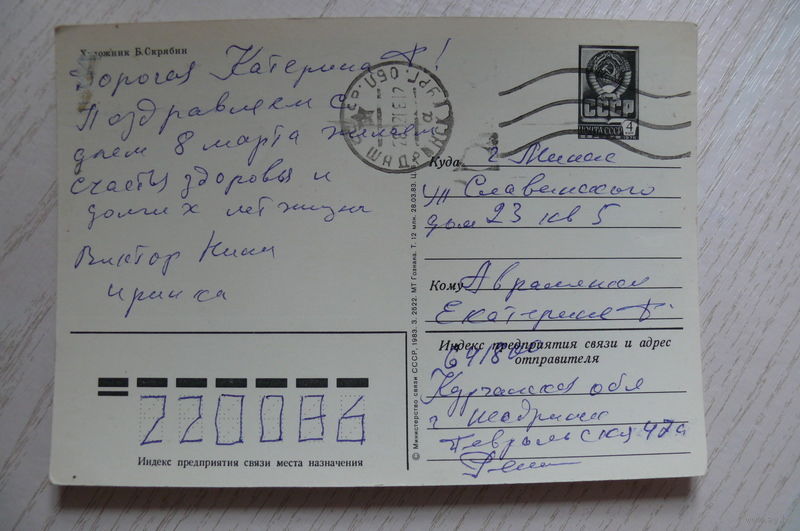 Художник Б. Скрябин
Дорогая Катерина Ф!
Поздравляем с
днем 8 марта желаем
счастья здоровья и
долгих лет жизни
Виктор Нина
Иринка
СССР
ПОЧТА СССР 4
Куда г Минск
ул Славинского
дом 23 кв 5
Кому
Екатерине Ф.
Индекс предприятия связи и адрес
отправителя
Курганская обл
г Шадринск
Февральская
220086
Индекс предприятия связи места назначения
© Министерство связи СССР, 1983. З. 2522. МТ Гознака. Т. 12 млн. 28.03.83.